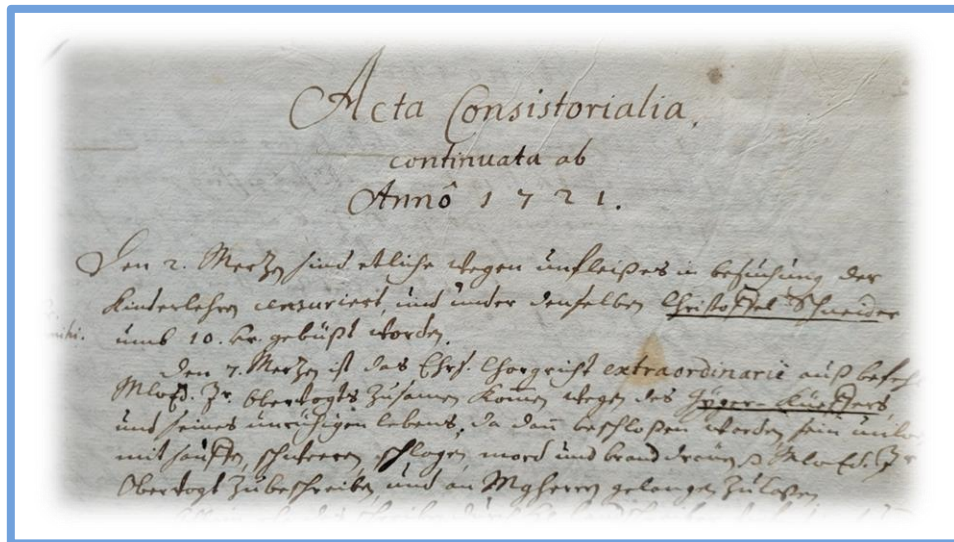 Acta Consistorialia,
continuata ab
Annô 1721.
Den 2. Mertzen sind etliche wegen unfleißes in besuchung der
Kinterlehren censuriert, und unter denselben Christoffel Schneider
umb 10. bz. gebüßt worden.
Den 7. Mertzen ist das Ehrs. Chorgricht extraordinarie auß befehl
Obervogts Zusamen Komen wegen des
und seines unrühigen lebens, da dann beschloßen worden sein
mit sauffen, schweren, schlagen, mord und brand dräuen
Obervogt Zubeschreiben und an Mgherren gelangen Zulaßen